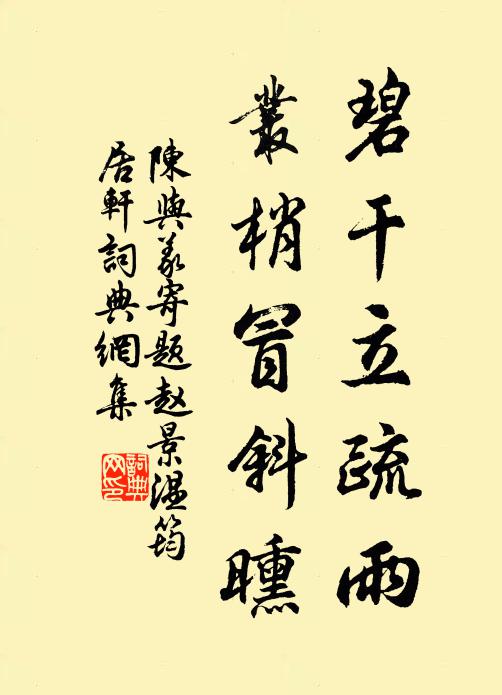 碧干立疏雨
叢梢冒斜曛
陳與義寄題趙景温筠
居軒詞典網集
詞典網印